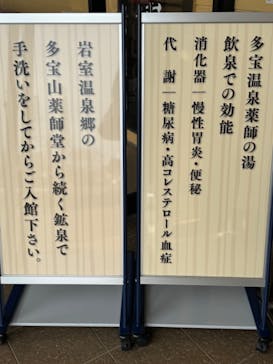 多宝温泉薬師の湯
飲泉での効能
消化器―慢性胃炎・便秘
代　謝―糖尿病・高コレステロール血症
岩室温泉郷の
多宝山薬師堂から続く鉱泉で
手洗いをしてからご入館下さい。